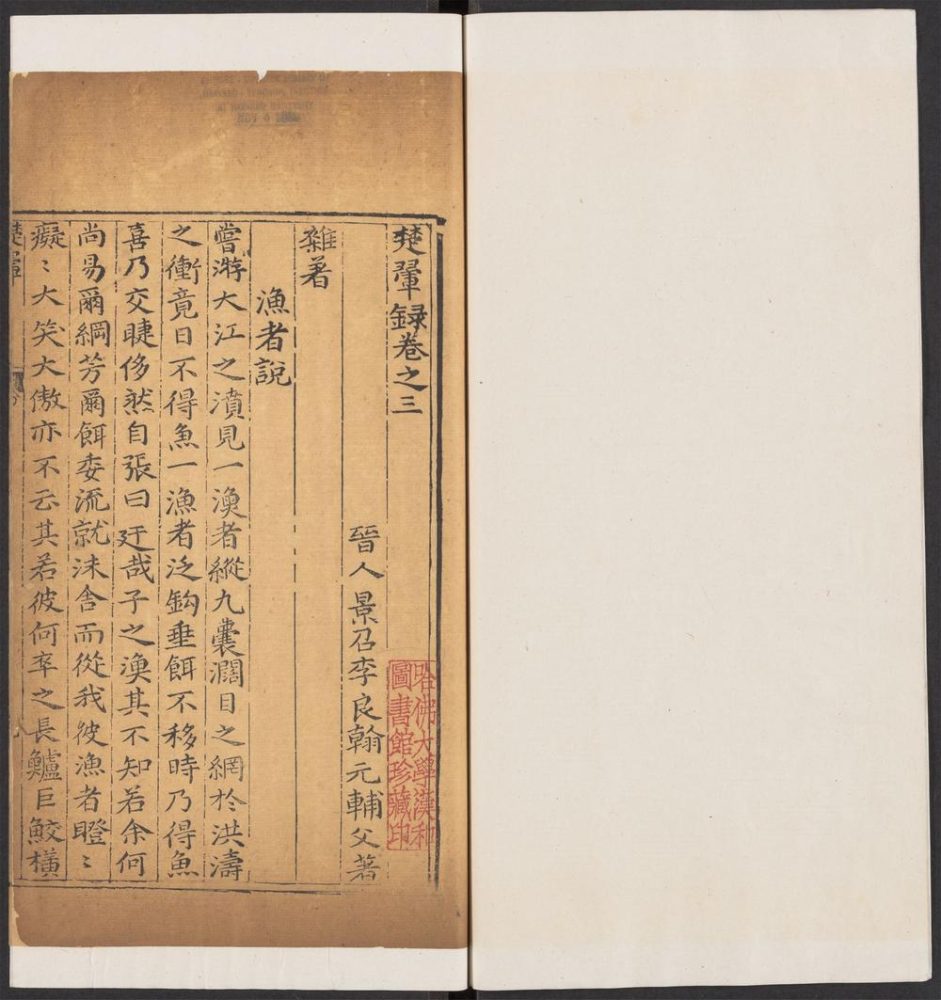 楚鞏録卷之三
哈佛大學漢和
圖書館珍藏印
晉人景召李良翰元輔父著
雜著
漁者說
嘗游大江之濆見一漁者縱九囊濶目之網於洪濤
之衝竟日不得魚一漁者泛鈎垂餌不移時乃得魚
喜乃交睫侈然自張曰迂哉子之漁其不知若余何
尚易爾綱芳爾餌委流就沫舍而從我彼漁者瞪〻
癡〻大笑大傲亦不云其若彼何率之長鱸巨鮫橫